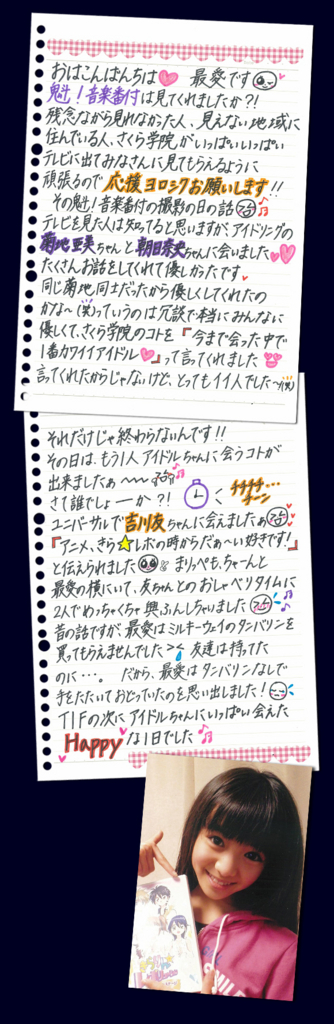 おはこんばんちは 最愛です
魁!音楽番付は見てくれましたか?!
残念ながら見れなかった人、見えない地域に
住んでいる人、さくら学院がいっぱいいっぱい
テレビに出てみなさんに見てもらえるように
頑張るので 応援ヨロシクお願いします!!
その魁!音楽番付の撮影の日の話
テレビを見た人は知ってると思いますが、アイドリングの
菊地亜美ちゃんと朝日奈央ちゃんに会いました
たくさんお話をしてくれて優しかったです
同じ菊地同士だったから優しくしてくれたの
かな〜(笑)っていうのは冗談で本当にみんなに
優しくて、さくら学院のコトを『今まで会った中で
1番カワイイアイドル』って言ってくれました
言ってくれたからじゃないけど、とってもイイ人でした〜(笑)
それだけじゃ終わらないんです!!
その日は、もう1人アイドルちゃんに会うコトが
出来ましたぁ〜〜
さて誰でしょーか?! チチチチ…
チーン
ユニバーサルで吉川友ちゃんに会えましたぁ
『アニメ、きら☆レボの時からだぁ〜い好きです!』
と伝えられました & まりっぺも、ちゃーんと
最愛の横にいて、友ちゃんとのおしゃべりタイムに
2人でめっちゃくちゃ興ふんしちゃいました
昔の話ですが、最愛はミルキーウェイのタンバリンを
買ってもらえませんでした>< 友達は持ってた
のに…。 だから、最愛はタンバリンなしで
手をたたいておどっていたのを思い出しました!
TIFの次にアイドルちゃんにいっぱい会えた
Happyな1日でした